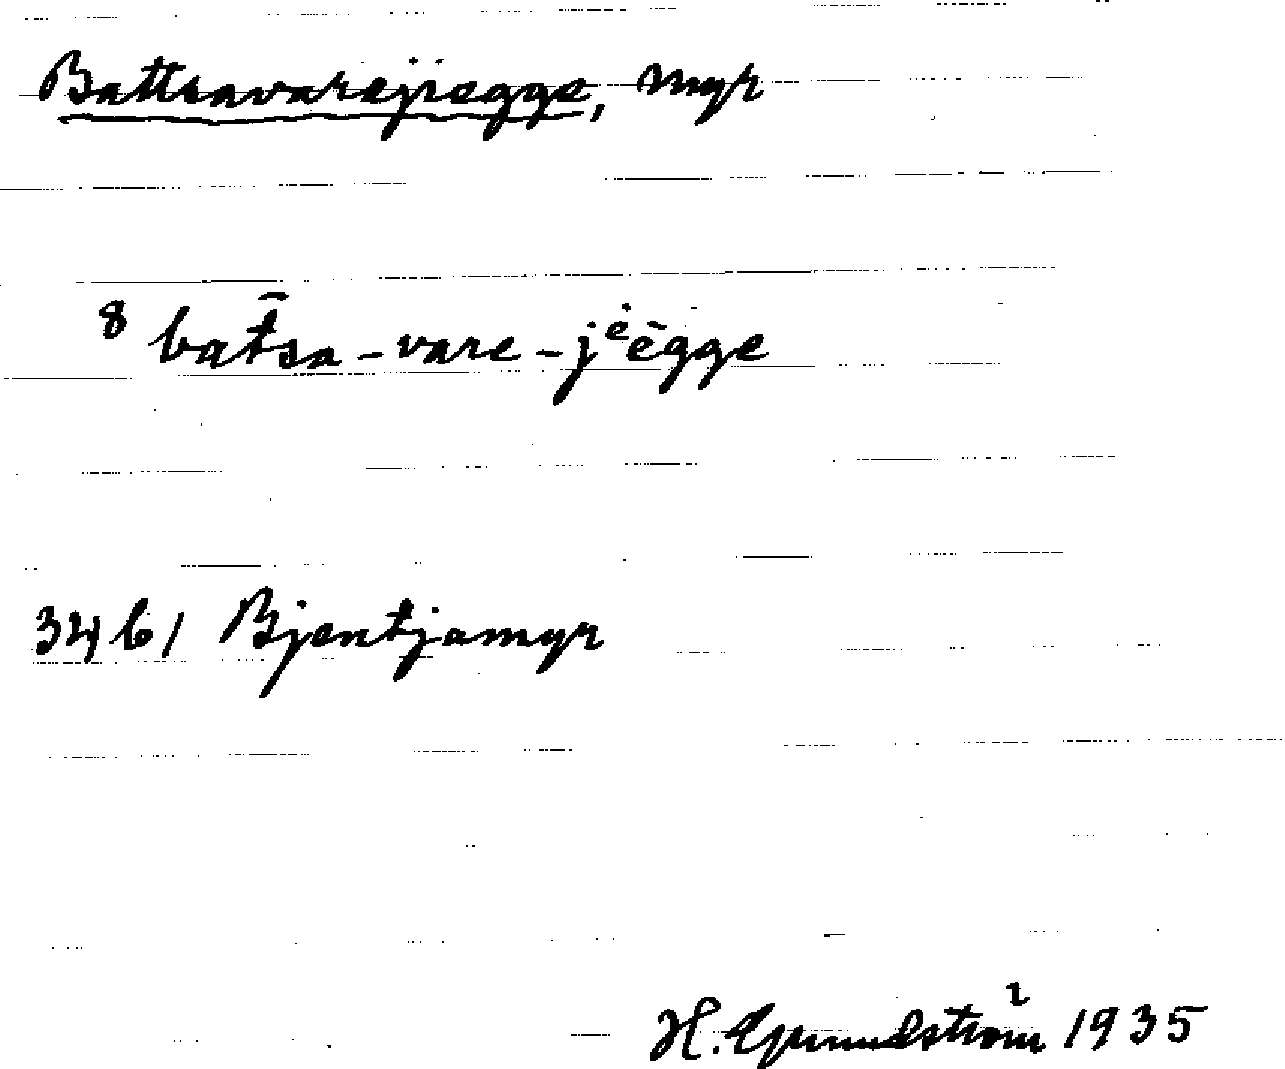 Battsavarejiegge, myr
8 bat̄sa-vare-jėègge
3461 Bjentjamyr
H. Grundström 1935